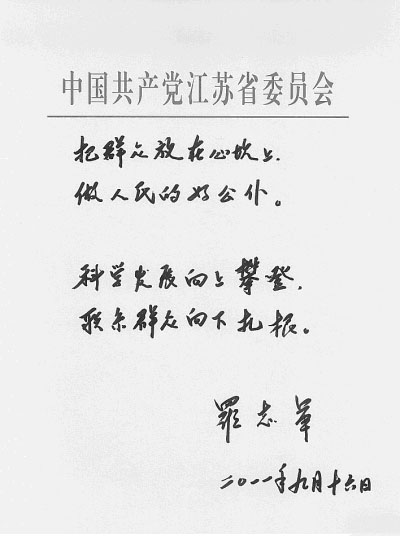 中国共产党江苏省委员会
把群众放在心坎上,
做人民的好公仆。
科学发展向上攀登,
联系群众向下扎根。
罗志军
二〇一一年九月十六日